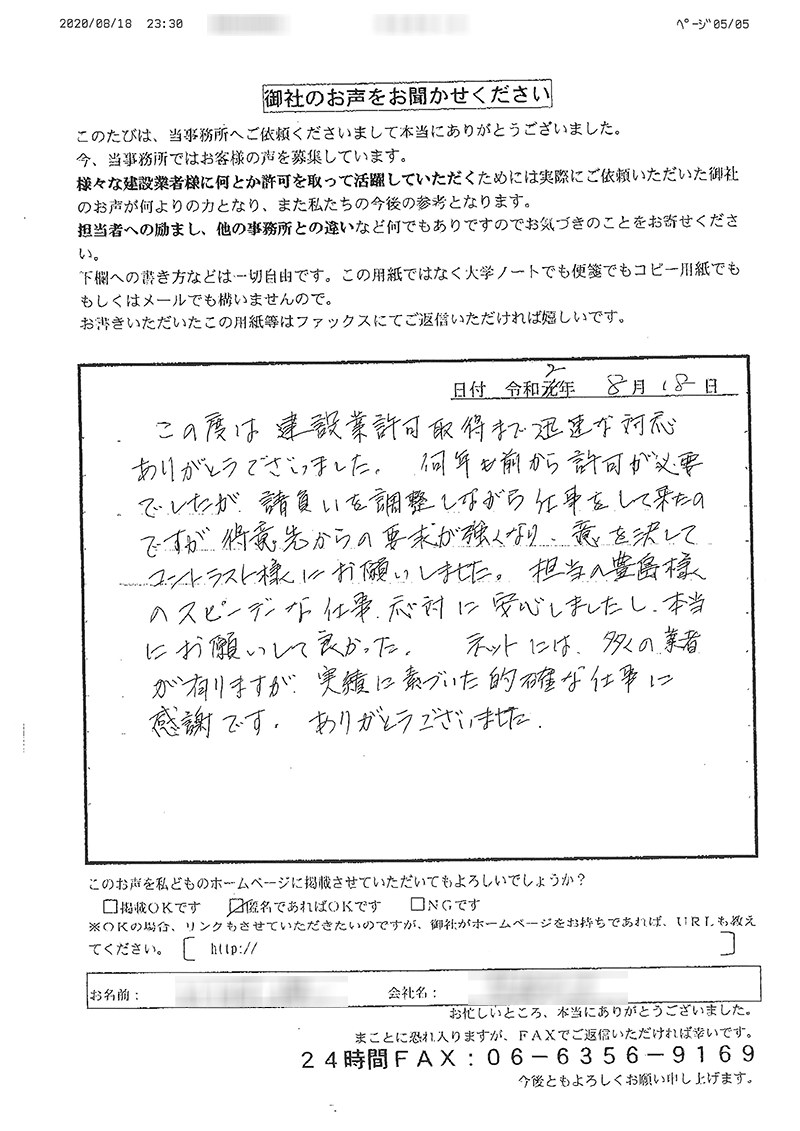 2020/08/18 23:30 ﾍﾟｰｼﾞ05/05
御社のお声をお聞かせください
このたびは、当事務所へご依頼くださいまして本当にありがとうございました。
今、当事務所ではお客様の声を募集しています。
様々な建設業者様に何とか許可を取って活躍していただくためには実際にご依頼いただいた御社
のお声が何よりの力となり、また私たちの今後の参考となります。
担当者への励まし、他の事務所との違いなど何でもありですのでお気づきのことをお寄せくださ
い。
下欄への書き方などは一切自由です。この用紙ではなく大学ノートでも便箋でもコピー用紙でも
もしくはメールでも構いませんので。
お書きいただいたこの用紙等はファックスにてご返信いただければ嬉しいです。
日付 令和元2年 8月18日
この度は 建設業許可取得まで迅速な対応
ありがとうございました。 何年も前から許可が必要
でしたが 請負いを調整しながら仕事をして来たの
ですが 得意先からの要求が強くなり、意を決して
コントラスト様にお願いしました。 担当の豊島様
のスピーデな仕事、応対に安心しましたし、本当
にお願いして良かった。 ネットには、多くの業者
が有りますが、実績に基づいた的確な仕事に
感謝です。 ありがとうございました.
このお声を私どものホームページに掲載させていただいてもよろしいでしょうか？
□掲載OKです ☑匿名であればOKです □NGです
※OKの場合、リンクもさせていただきたいのですが、御社がホームページをお持ちであれば、URLも教え
てください。〔 http:// 〕
お名前： 会社名：
お忙しいところ、本当にありがとうございました。
まことに恐れ入りますが、FAXでご返信いただければ幸いです。
24時間FAX：06-6356-9169
今後ともよろしくお願い申し上げます。